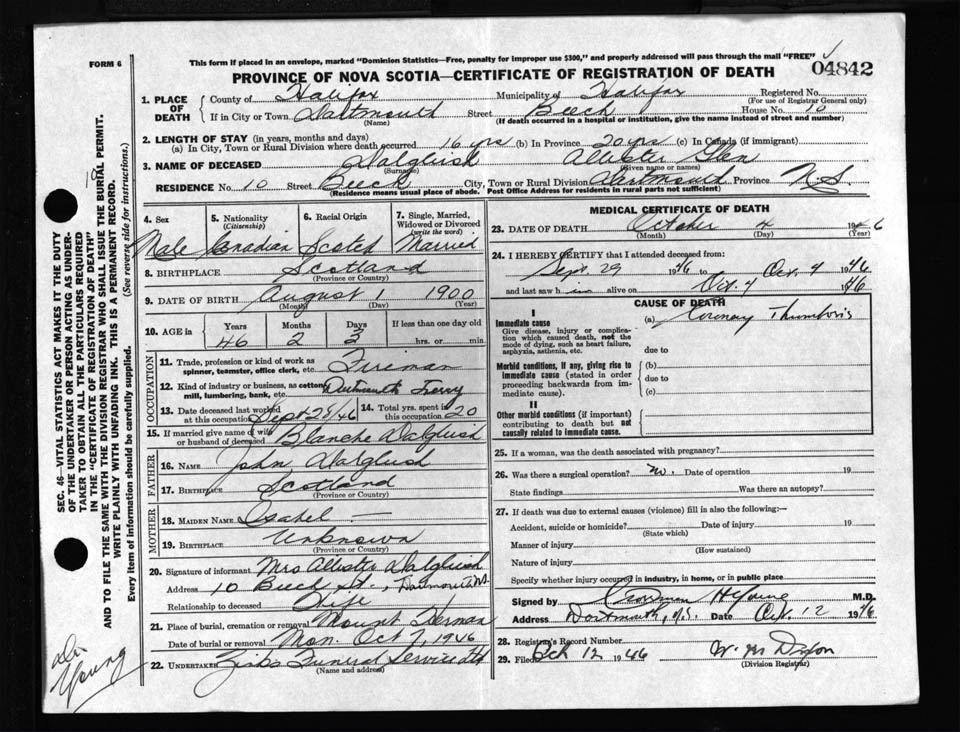 FORM 6
This form if placed in an envelope, marked "Dominion Statistics—Free, penalty for improper use $300," and properly addressed will pass through the mail "FREE"
04842
PROVINCE OF NOVA SCOTIA—CERTIFICATE OF REGISTRATION OF DEATH
1. PLACE OF DEATH { County of Halifax Municipality of Halifax Registered No.
(For use of Registrar General only)
If in City or Town Dartmouth Street Beech House No. 10
(Name) (If death occurred in a hospital or institution, give the name instead of street and number)
2. LENGTH OF STAY (in years, months and days)
(a) In City, Town or Rural Division where death occurred 16 yrs (b) In Province 20 yrs (c) In Canada (if immigrant)
3. NAME OF DECEASED Dalgliesh Allister Glen
(Surname) (Given name or names)
RESIDENCE No. 10 Street Beech City, Town or Rural Division Dartmouth Province N.S.
(Residence means usual place of abode. Post Office Address for residents in rural parts not sufficient)
4. Sex 5. Nationality 6. Racial Origin 7. Single, Married,
(Citizenship) Widowed or Divorced
(write the word)
Male Canadian Scotch Married
8. BIRTHPLACE Scotland
(Province or Country)
9. DATE OF BIRTH August 1 1900
(Month) (Day) (Year)
10. AGE in Years Months Days If less than one day old
46 2 3 hrs. or min.
OCCUPATION
11. Trade, profession or kind of work as Fireman
spinner, teamster, office clerk, etc.
12. Kind of industry or business, as cotton Dartmouth Ferry
mill, lumbering, bank, etc.
13. Date deceased last worked at this occupation Sept 29/46 14. Total yrs. spent in this occupation 20
15. If married give name of wife or husband of deceased Blanche Dalgliesh
FATHER
16. NAME John Dalgliesh
17. BIRTHPLACE Scotland
(Province or Country)
MOTHER
18. MAIDEN NAME Isabel —
19. BIRTHPLACE Unknown
(Province or Country)
20. Signature of informant Mrs Allister Dalgliesh
Address 10 Beech St., Dartmouth N.S.
Relationship to deceased Wife
21. Place of burial, cremation or removal Mount Herman
Date of burial or removal Mon. Oct 7, 1946
22. UNDERTAKER Funeral Service
(Name and address)
MEDICAL CERTIFICATE OF DEATH
23. DATE OF DEATH October 4 1946
(Month) (Day) (Year)
24. I HEREBY CERTIFY that I attended deceased from:
Sept. 29 1946 to Oct. 4 1946
and last saw him alive on Oct. 4 1946
CAUSE OF DEATH
I
Immediate cause (a) Coronary Thrombosis
Give disease, injury or complication which caused death, not the mode of dying, such as heart failure, asphyxia, asthenia, etc. due to
Morbid conditions, if any, giving rise to immediate cause (stated in order proceeding backwards from immediate cause). (b) due to (c)
II
Other morbid conditions (if important) contributing to death but not causally related to immediate cause.
25. If a woman, was the death associated with pregnancy?
26. Was there a surgical operation? no. Date of operation 19
State findings Was there an autopsy?
27. If death was due to external causes (violence) fill in also the following:—
Accident, suicide or homicide? Date of injury 19
(State which)
Manner of injury
(How sustained)
Nature of injury
Specify whether injury occurred in industry, in home, or in public place
Signed by H Young M.D.
Address Dartmouth, N.S. Date Oct. 12 1946
28. Registrar's Record Number
29. Filed Oct 12 1946 W. M Dixon
(Division Registrar)
SEC. 46—VITAL STATISTICS ACT MAKES IT THE DUTY
OF THE UNDERTAKER OR PERSON ACTING AS UNDER-
TAKER TO OBTAIN ALL THE PARTICULARS REQUIRED
IN THE "CERTIFICATE OF REGISTRATION OF DEATH"
AND TO FILE THE SAME WITH THE DIVISION REGISTRAR WHO SHALL ISSUE THE BURIAL PERMIT.
WRITE PLAINLY WITH UNFADING INK. THIS IS A PERMANENT RECORD.
Every item of information should be carefully supplied. (See reverse side for instructions.)
Dr. Young